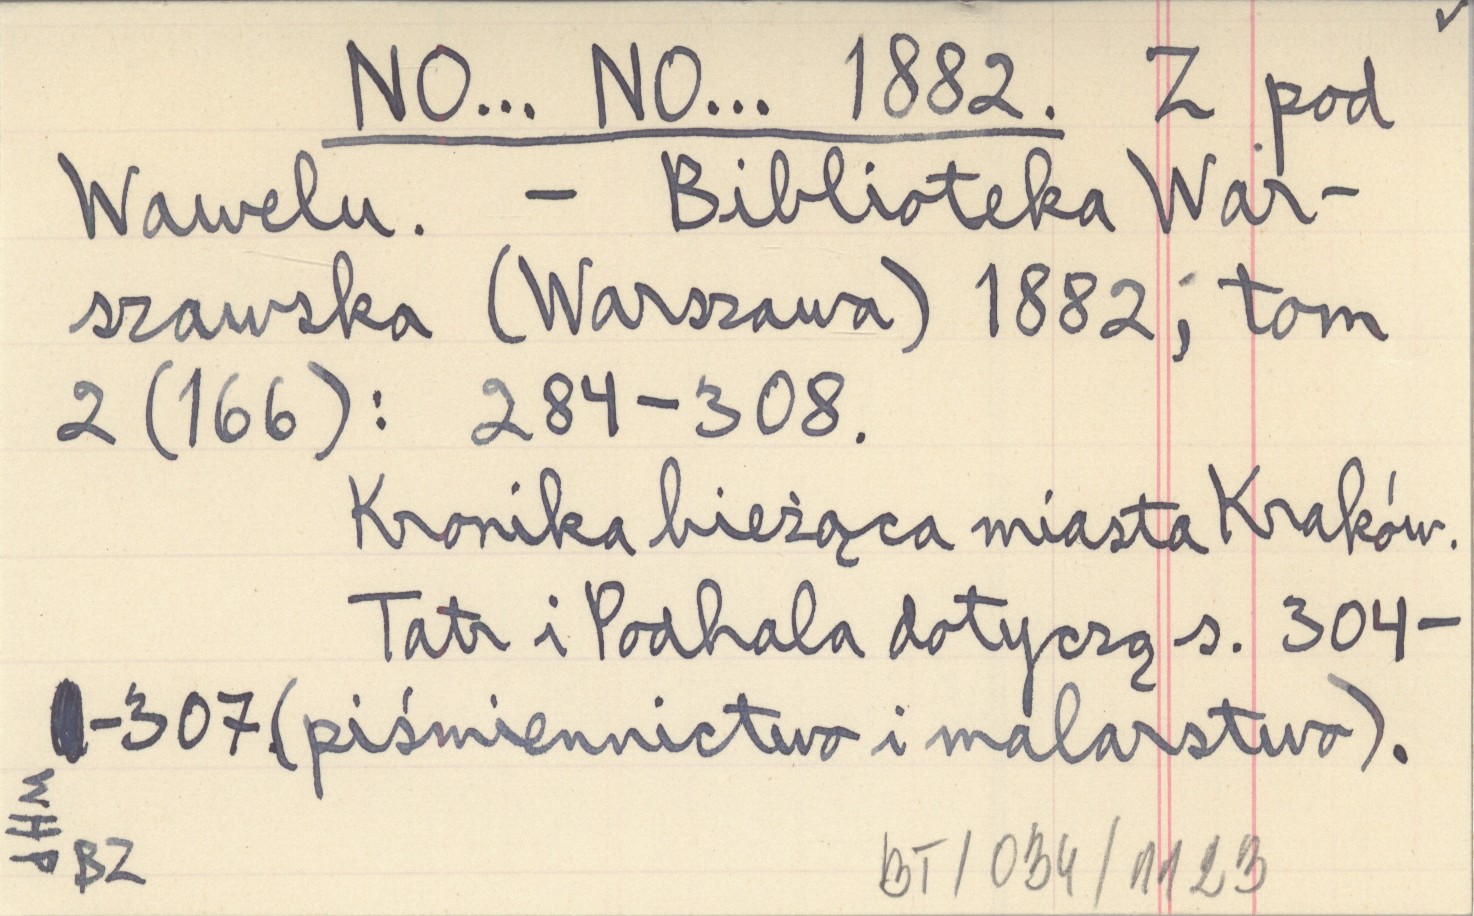 NO... NO... 1882. Z pod
Wawelu. – Biblioteka War-
szawska (Warszawa) 1882; tom
2 (166): 284–308.
Kronika bieżąca miasta Kraków.
Tatr i Podhala dotyczą s. 304–
-307 (piśmiennictwo i malarstwo).
WHP
BZ
BT/034/1123